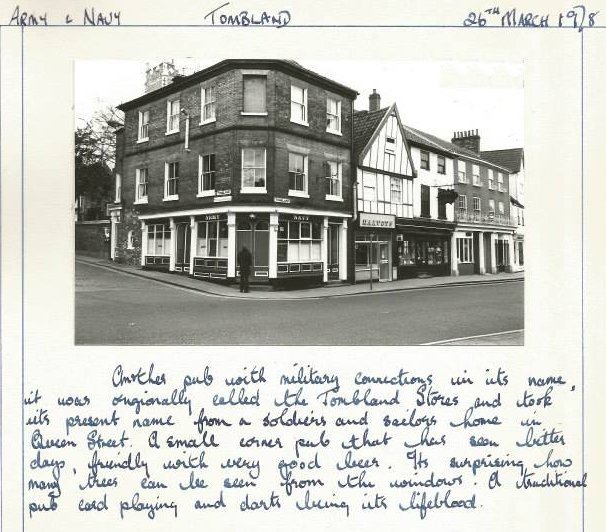 ARMY & NAVY TOMBLAND 26TH MARCH 1978
ARMY NAVY
HALVOTS
Another pub with military connections in its name,
it was origionally called the Tombland Stores and took
its present name from a soldiers and sailors home in
Queen Street. A small corner pub that has seen better
days, friendly with very good beer. Its surprising how
many trees can be seen from the windows. A traditional
pub card playing and darts being its lifeblood.